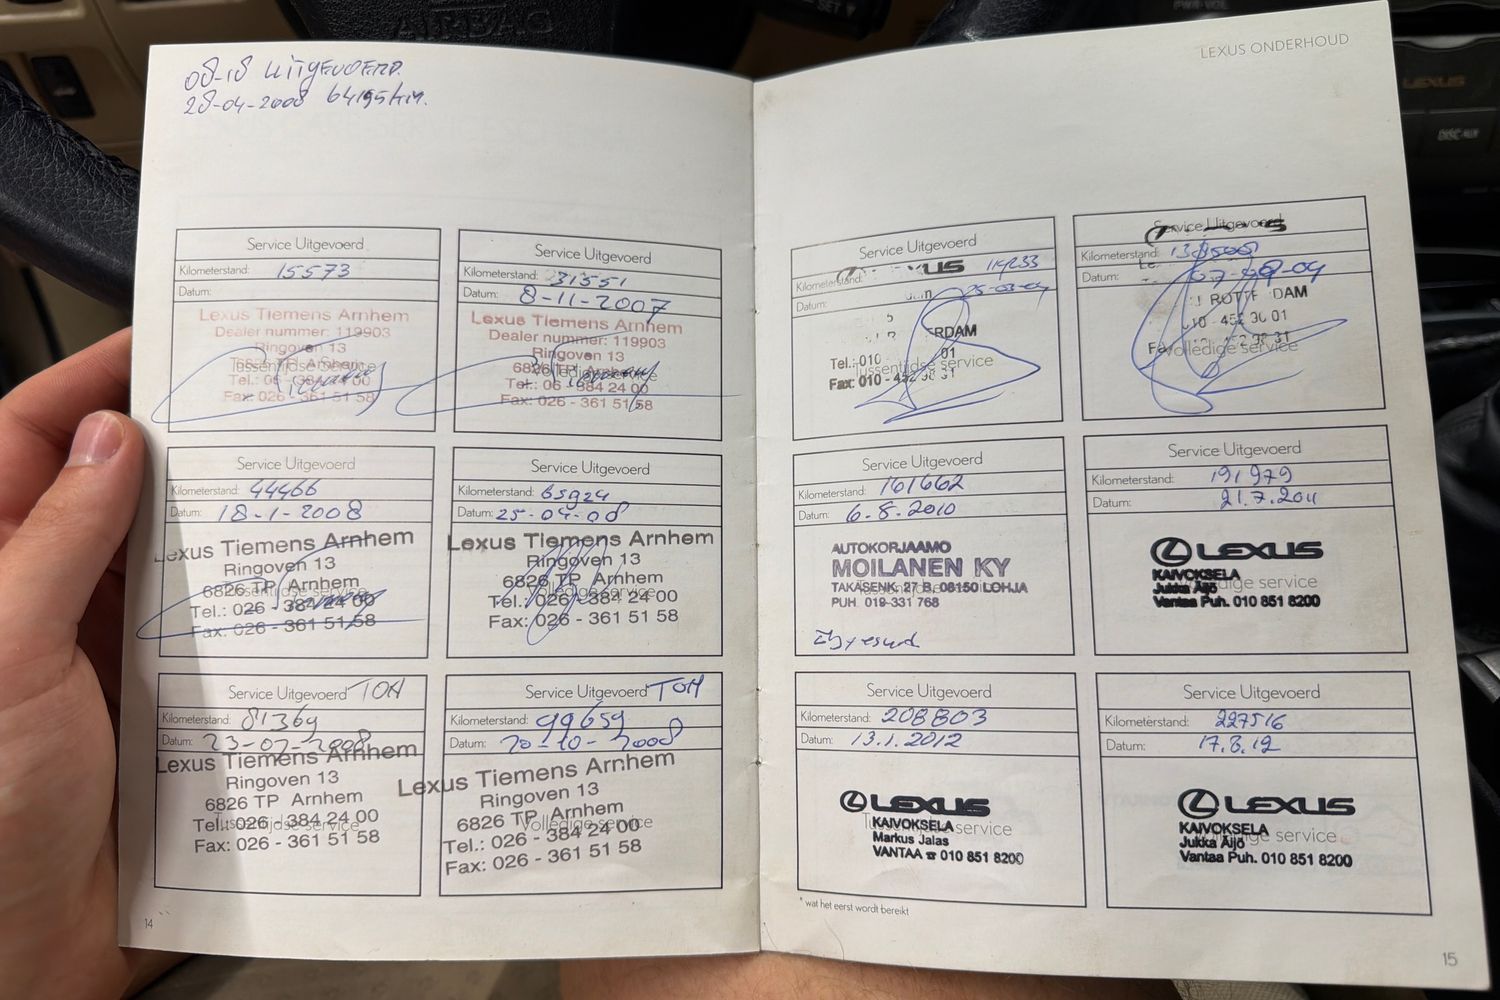 AIRBAG
LEXUS
LEXUS ONDERHOUD
08-18 UITGEVOERD
28-04-2008 64195km.
Service Uitgevoerd
Kilometerstand: 15573
Datum:
Lexus Tiemens Arnhem
Dealer nummer: 119903
Ringoven 13
Tussentijdse Service
Tel.: 06 - 384 24 00
Fax: 026 - 361 51 58
Service Uitgevoerd
Kilometerstand: 31551
Datum: 8-11-2007
Lexus Tiemens Arnhem
Dealer nummer: 119903
Ringoven 13
6826 TP Arnhem
Tel.: 06 - 384 24 00
Fax: 026 - 361 51 58
Service Uitgevoerd
Kilometerstand: 44466
Datum: 18-1-2008
Lexus Tiemens Arnhem
Ringoven 13
6826 TP Arnhem
Tel.: 026 - 384 24 00
Fax: 026 - 361 51 58
Service Uitgevoerd
Kilometerstand: 65924
Datum: 25-04-08
Lexus Tiemens Arnhem
Ringoven 13
6826 TP Arnhem
Volledige service
Tel.: 026 - 384 24 00
Fax: 026 - 361 51 58
Service Uitgevoerd TOM
Kilometerstand: 81369
Datum: 23-07-2008
Lexus Tiemens Arnhem
Ringoven 13
6826 TP Arnhem
Tel.: 026 - 384 24 00
Tussentijdse service
Fax: 026 - 361 51 58
Service Uitgevoerd TOM
Kilometerstand: 99659
Datum: 20-10-2008
Lexus Tiemens Arnhem
Ringoven 13
6826 TP Arnhem
Volledige service
Tel.: 026 - 384 24 00
Fax: 026 - 361 51 58
14
Service Uitgevoerd
LEXUS
Kilometerstand: 114233
Datum: 25-03-09
ERDAM
Tel.: 010 01
Tussentijdse service
Fax: 010 - 452 98 31
Service Uitgevoerd
Kilometerstand:
Datum:
ROTTERDAM
010 - 452 30 01
Volledige service
Service Uitgevoerd
Kilometerstand: 161662
Datum: 6.8.2010
AUTOKORJAAMO
MOILANEN KY
TAKASENK. 27 B, 08150 LOHJA
PUH. 019-331 768
Service Uitgevoerd
Kilometerstand: 191979
Datum: 21.7.2011
LEXUS
KAIVOKSELA
Volledige service
Jukka Äijö
Vantaa Puh. 010 851 8200
Service Uitgevoerd
Kilometerstand: 208803
Datum: 13.1.2012
LEXUS
KAIVOKSELA
Tussentijdse service
Markus Jalas
VANTAA ☎ 010 851 8200
Service Uitgevoerd
Kilometerstand: 227516
Datum: 17.8.12
LEXUS
KAIVOKSELA
Volledige service
Jukka Äijö
Vantaa Puh. 010 851 8200
* wat het eerst wordt bereikt
15